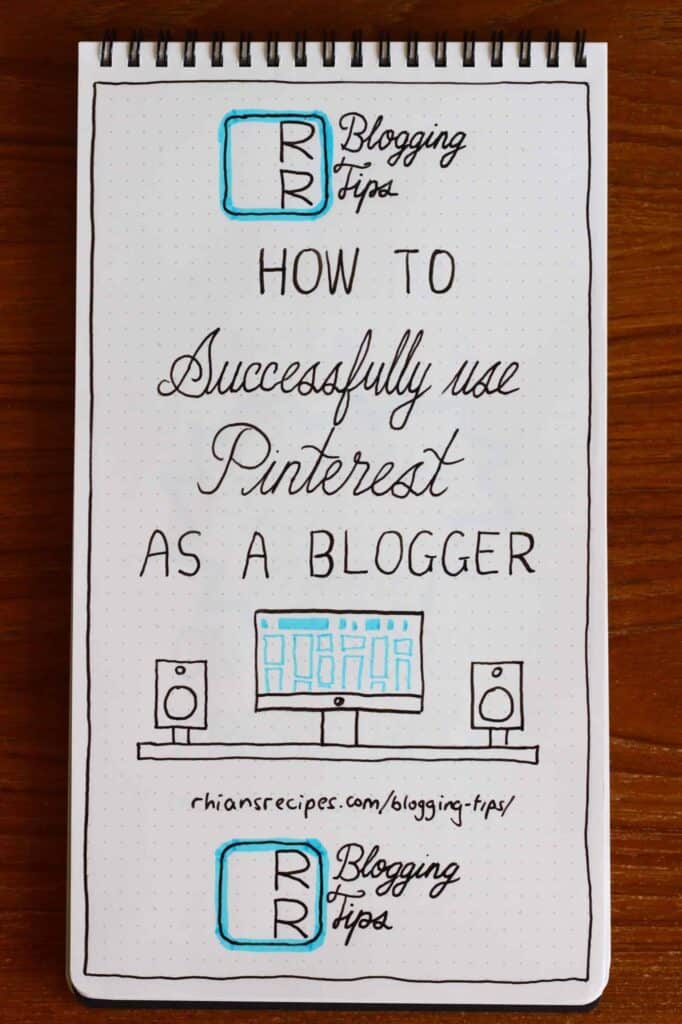 R Blogging
R Tips
HOW TO
Successfully use
Pinterest
AS A BLOGGER
rhiansrecipes.com/blogging-tips/
R Blogging
R Tips